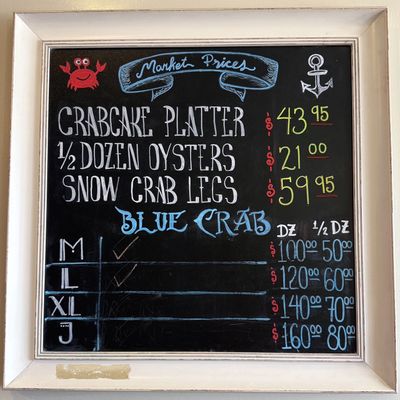 Market Prices
CRABCAKE PLATTER $ 43 95
1/2 DOZEN OYSTERS $ 21 00
SNOW CRAB LEGS $ 59 95
BLUE CRAB DZ 1/2 DZ
M ✓ $ 100 00 50 00
L ✓ $ 120 00 60 00
XL $ 140 00 70 00
J $ 160 00 80 00